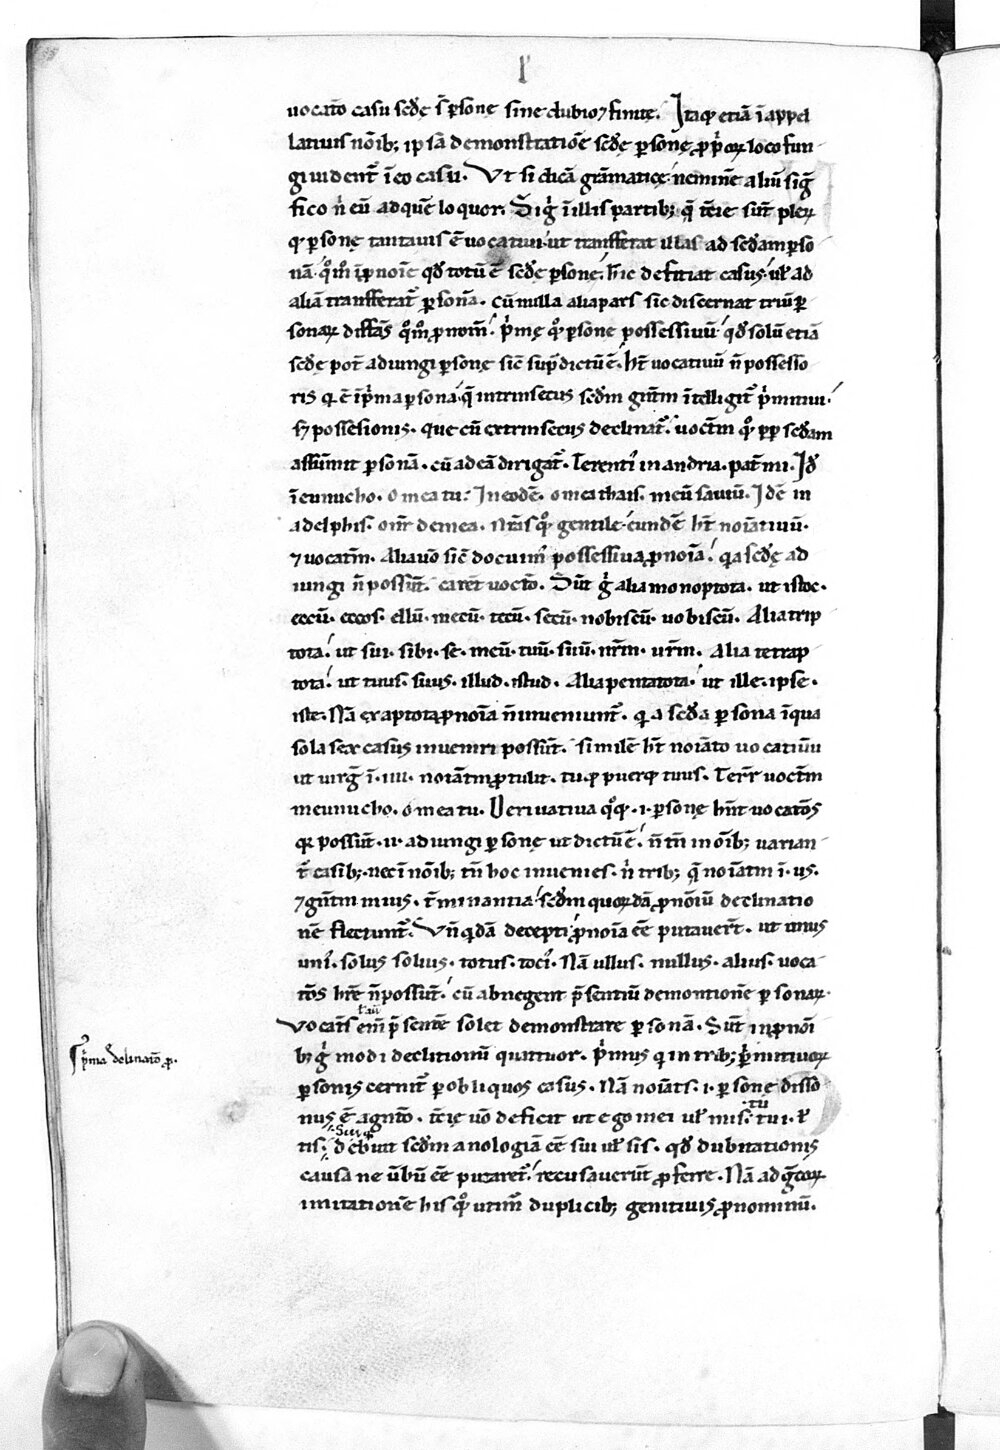 uocat̄o casu sedę s̄ ꝑsonę sine dubio ⁊ finitę. Itaq; etiā ī appel
latiuis nōib; ip̄sā demonstrationē sedę ꝑsonę ꝓprioꝝ loco fun
gi uident̄ ī eo casu. Vt si dicā grāmaticę neminē aliū siḡ
fico n̄ eū ad quē loquor. Siḡ ī illis partib; q̄ tcię sunt pleꝝ
q; ꝑsonę tanta uis ē uocatiui ut transferat illas ad sedam ꝑso
nā
aliā transferat̄ ꝑsonā. cū nulla alia pars sic discernat triū ꝑ
sonaꝝ diffās qͦm̄ ꝓnom̄. p̄mę qͦ ꝑsonę possessiuū qd̄ solū etiā
sedę pot̄ adiungi ꝑsonę sic sup̄dictū ē. ht̄ uocatiuū n̄ possesso
ris q ē ī p̄ma ꝑsona q̄ intrinsecus sedm gn̄tm ītelligit̄ p̄mitiui.
s; possesionis. que cū extrinsecus declinat̄. uoct̄m qͦ ꝓp̄ sedam
assumit ꝑsonā. cū ad eā dirigat̄. Terenti in andria. pat̄ mi. Id̄
ī eunucho. o mea tu. In eodē. o mea thais. meū sauiū. Idē in
adelphis. o nr̄ demea. nr̄as qͦ gentile eundē ht̄ noīatiuū.
⁊ uocat̄m. Alia uō sic docuim̄ possessiua ꝓnoīa. q̄a sedę ad
iungi n̄ possunt̄. caret uoct̄o. Sūt g̊ alia monoptota. ut istoc.
eccū. eccos. ellū. mecū. tecū. secū. nobiscū. uobiscū. Alia trip
tota. ut sui. sibi. se. meū. tuū. suū. nr̄m. ur̄m. Alia tetrap
tota. ut tuus. suus. illud. istud. Alia pentatota. ut ille. ipse.
iste. Nā exaptota ꝓnoīa n̄ inueniunt̄. q̄a seda ꝑsona ī qua
sola sex casus inueniri possūt. similē ht̄ noīato uocatiuū
ut uirḡ ī .iiii. noīatm ꝓtulit. tu ꝓ puerq; tuus. Terr̄ uoct̄m
in eunucho. o mea tu. Deriuatiua qͦq; .i. ꝑsonę hn̄t uocatōs
q̄ possūt .ii. adiungi ꝑsonę ut dictū ē. n̄ tn̄ in oīb; uarian
t̄ casib;. nec ī nōib; tn̄ hoc inuenies. n̄ trib; q̄ noīatm ī .us.
⁊ gn̄tm in ius. t̄minantia sedm quordā ꝓnōiū declinatio
nē flectunt̄. Vn̄ qdā decepti ꝓnoīa eē putauert̄. ut unus
uni. solus solius. totus. toci. Nā ullus. nullus. alius. uoca
tōs hr̄e n̄ possūt. cū abnegent p̄sentiū demontionē ꝑsonaꝝ.
Vocatīs enī p̄sentē solet demonstrare ꝑsonā. Sūt in ꝓnoī
b; g̊ modi declitionū quattuor. p̄mus q in trib; p̄mitiuoꝝ
ꝑsonis cernit̄ ꝑ obliquos casus. Nā noīats .i. ꝑsonę disso
nus ē a gn̄to. tcię uō deficit ut ego mei ul̄ mis. tu tui .i. ul̄
tis. sui q̄ debuit sedm anologiā eē sui ul̄ sis. qd̄ dubitationis
causa ne ūbū eē putaret̄. recusauerūt ꝓferre. Nā ad gcoꝝ
imitationē his qͦ utim̄ duplicib; genitiuis ꝓnominū.
p̄ma delinatō ꝓ.